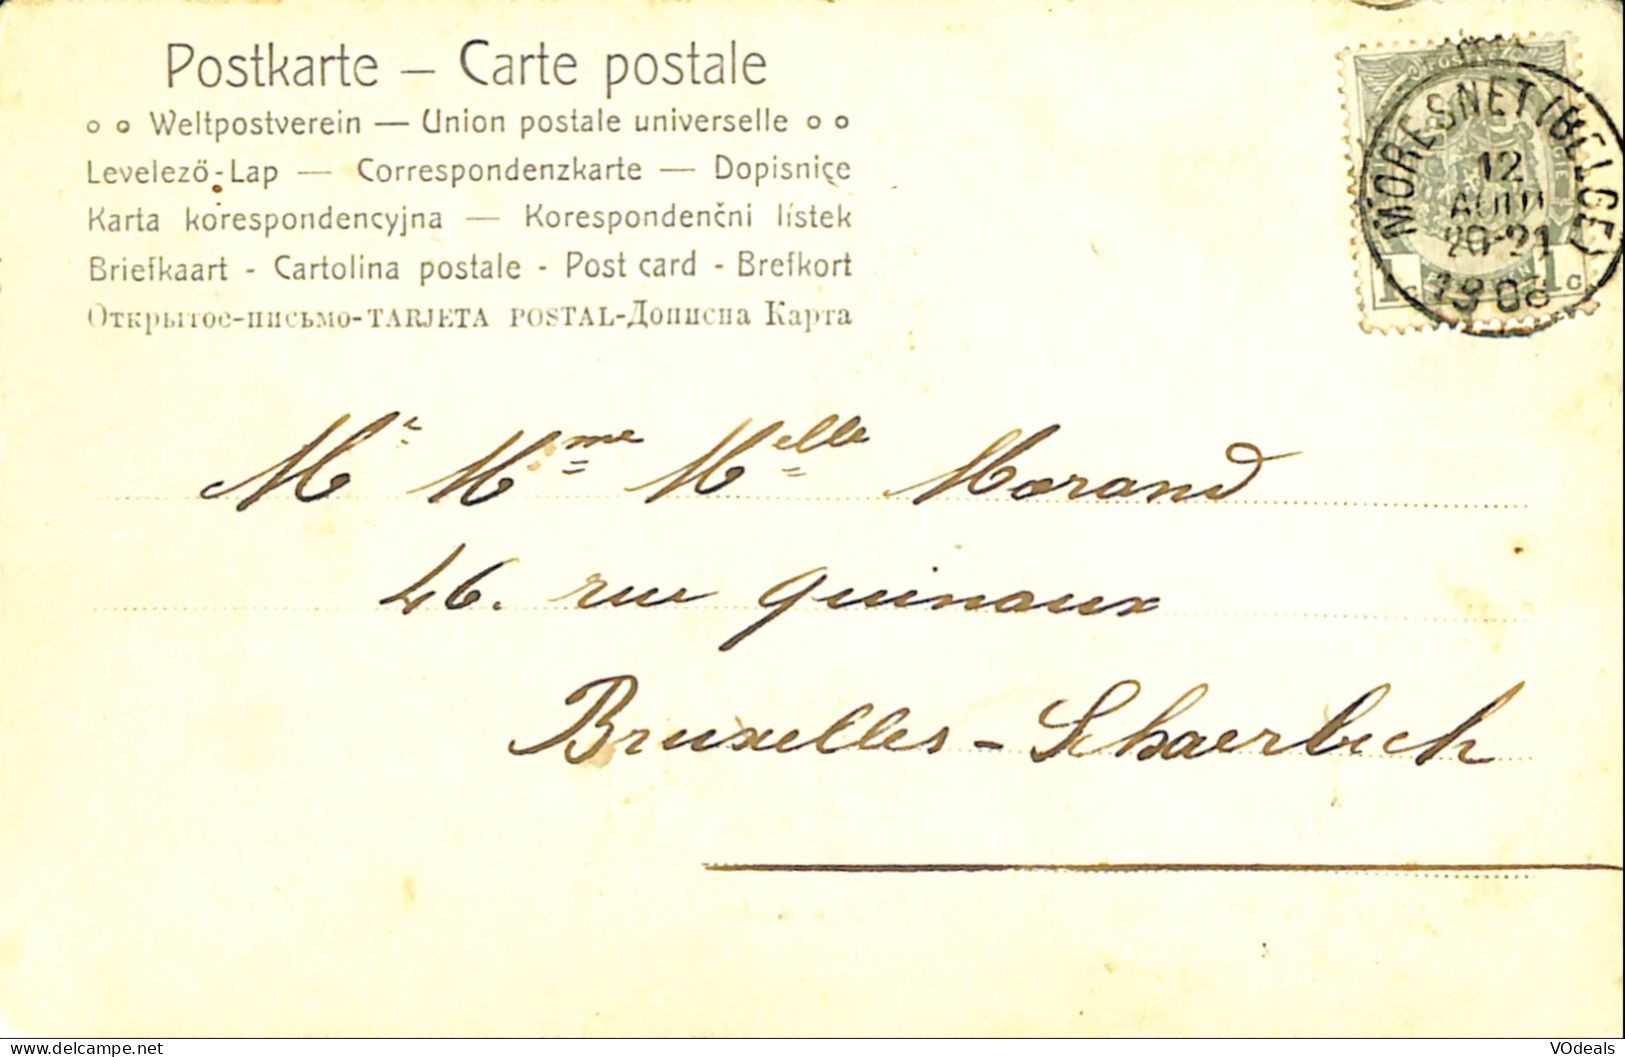 Postkarte – Carte postale
o o Weltpostverein — Union postale universelle o o
Levelező-Lap — Correspondenzkarte — Dopisnice
Karta korespondencyjna — Korespondenční lístek
Briefkaart - Cartolina postale - Post card - Brefkort
Открытое-письмо-TARJETA POSTAL-Дописна Карта
MORESNET (BELGE)
12
AOUT
20-21
1908
1 c
Mr Mme Melle Morand
46. rue Quinaux
Bruxelles - Schaerbeek
© VOdeals